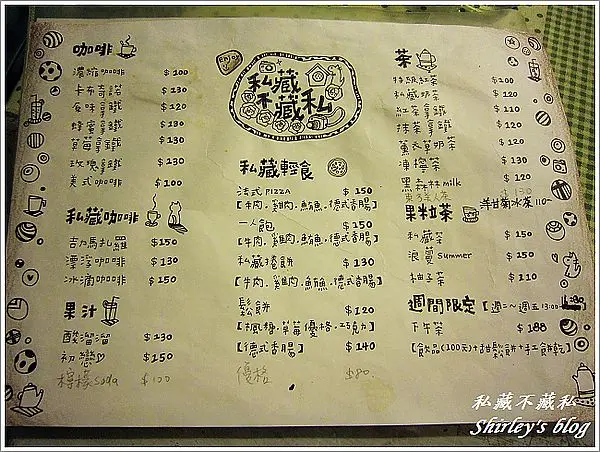 咖啡
濃縮咖啡 $100
卡布奇諾 $120
原味拿鐵 $120
蜂蜜拿鐵 $130
草莓拿鐵 $130
玫瑰拿鐵 $130
美式咖啡 $100
私藏咖啡
吉力馬札羅 $150
漂浮咖啡 $130
冰滴咖啡 $150
果汁
酸溜溜 $130
初戀 $150
檸檬soda $100
Enjoy
私藏不藏私
私藏輕食
法式PIZZA $150
【牛肉.雞肉.鮪魚.德式香腸】
一人飽 $150
【牛肉.雞肉.鮪魚.德式香腸】
私藏捲餅 $130
【牛肉.雞肉.鮪魚.德式香腸】
鬆餅 $120
【楓糖.草莓優格.巧克力】
【德式香腸】 $140
優格 $80.
茶
特級紅茶 $100
私藏奶茶 $120
紅茶拿鐵 $110
抹茶拿鐵 $120
薰衣草奶茶 $120
凍檸茶 $130
黑森林milk $120
東方美人茶 $130
果粒茶
洋甘菊冰茶 110-
私藏茶 $150
浪曼Summer $150
柚子茶 $110
週間限定【週二~週五13:00-
下午茶 $188
【飲品(100元)+甜鬆餅+手工餅乾】
私藏不藏私
Shirley's blog